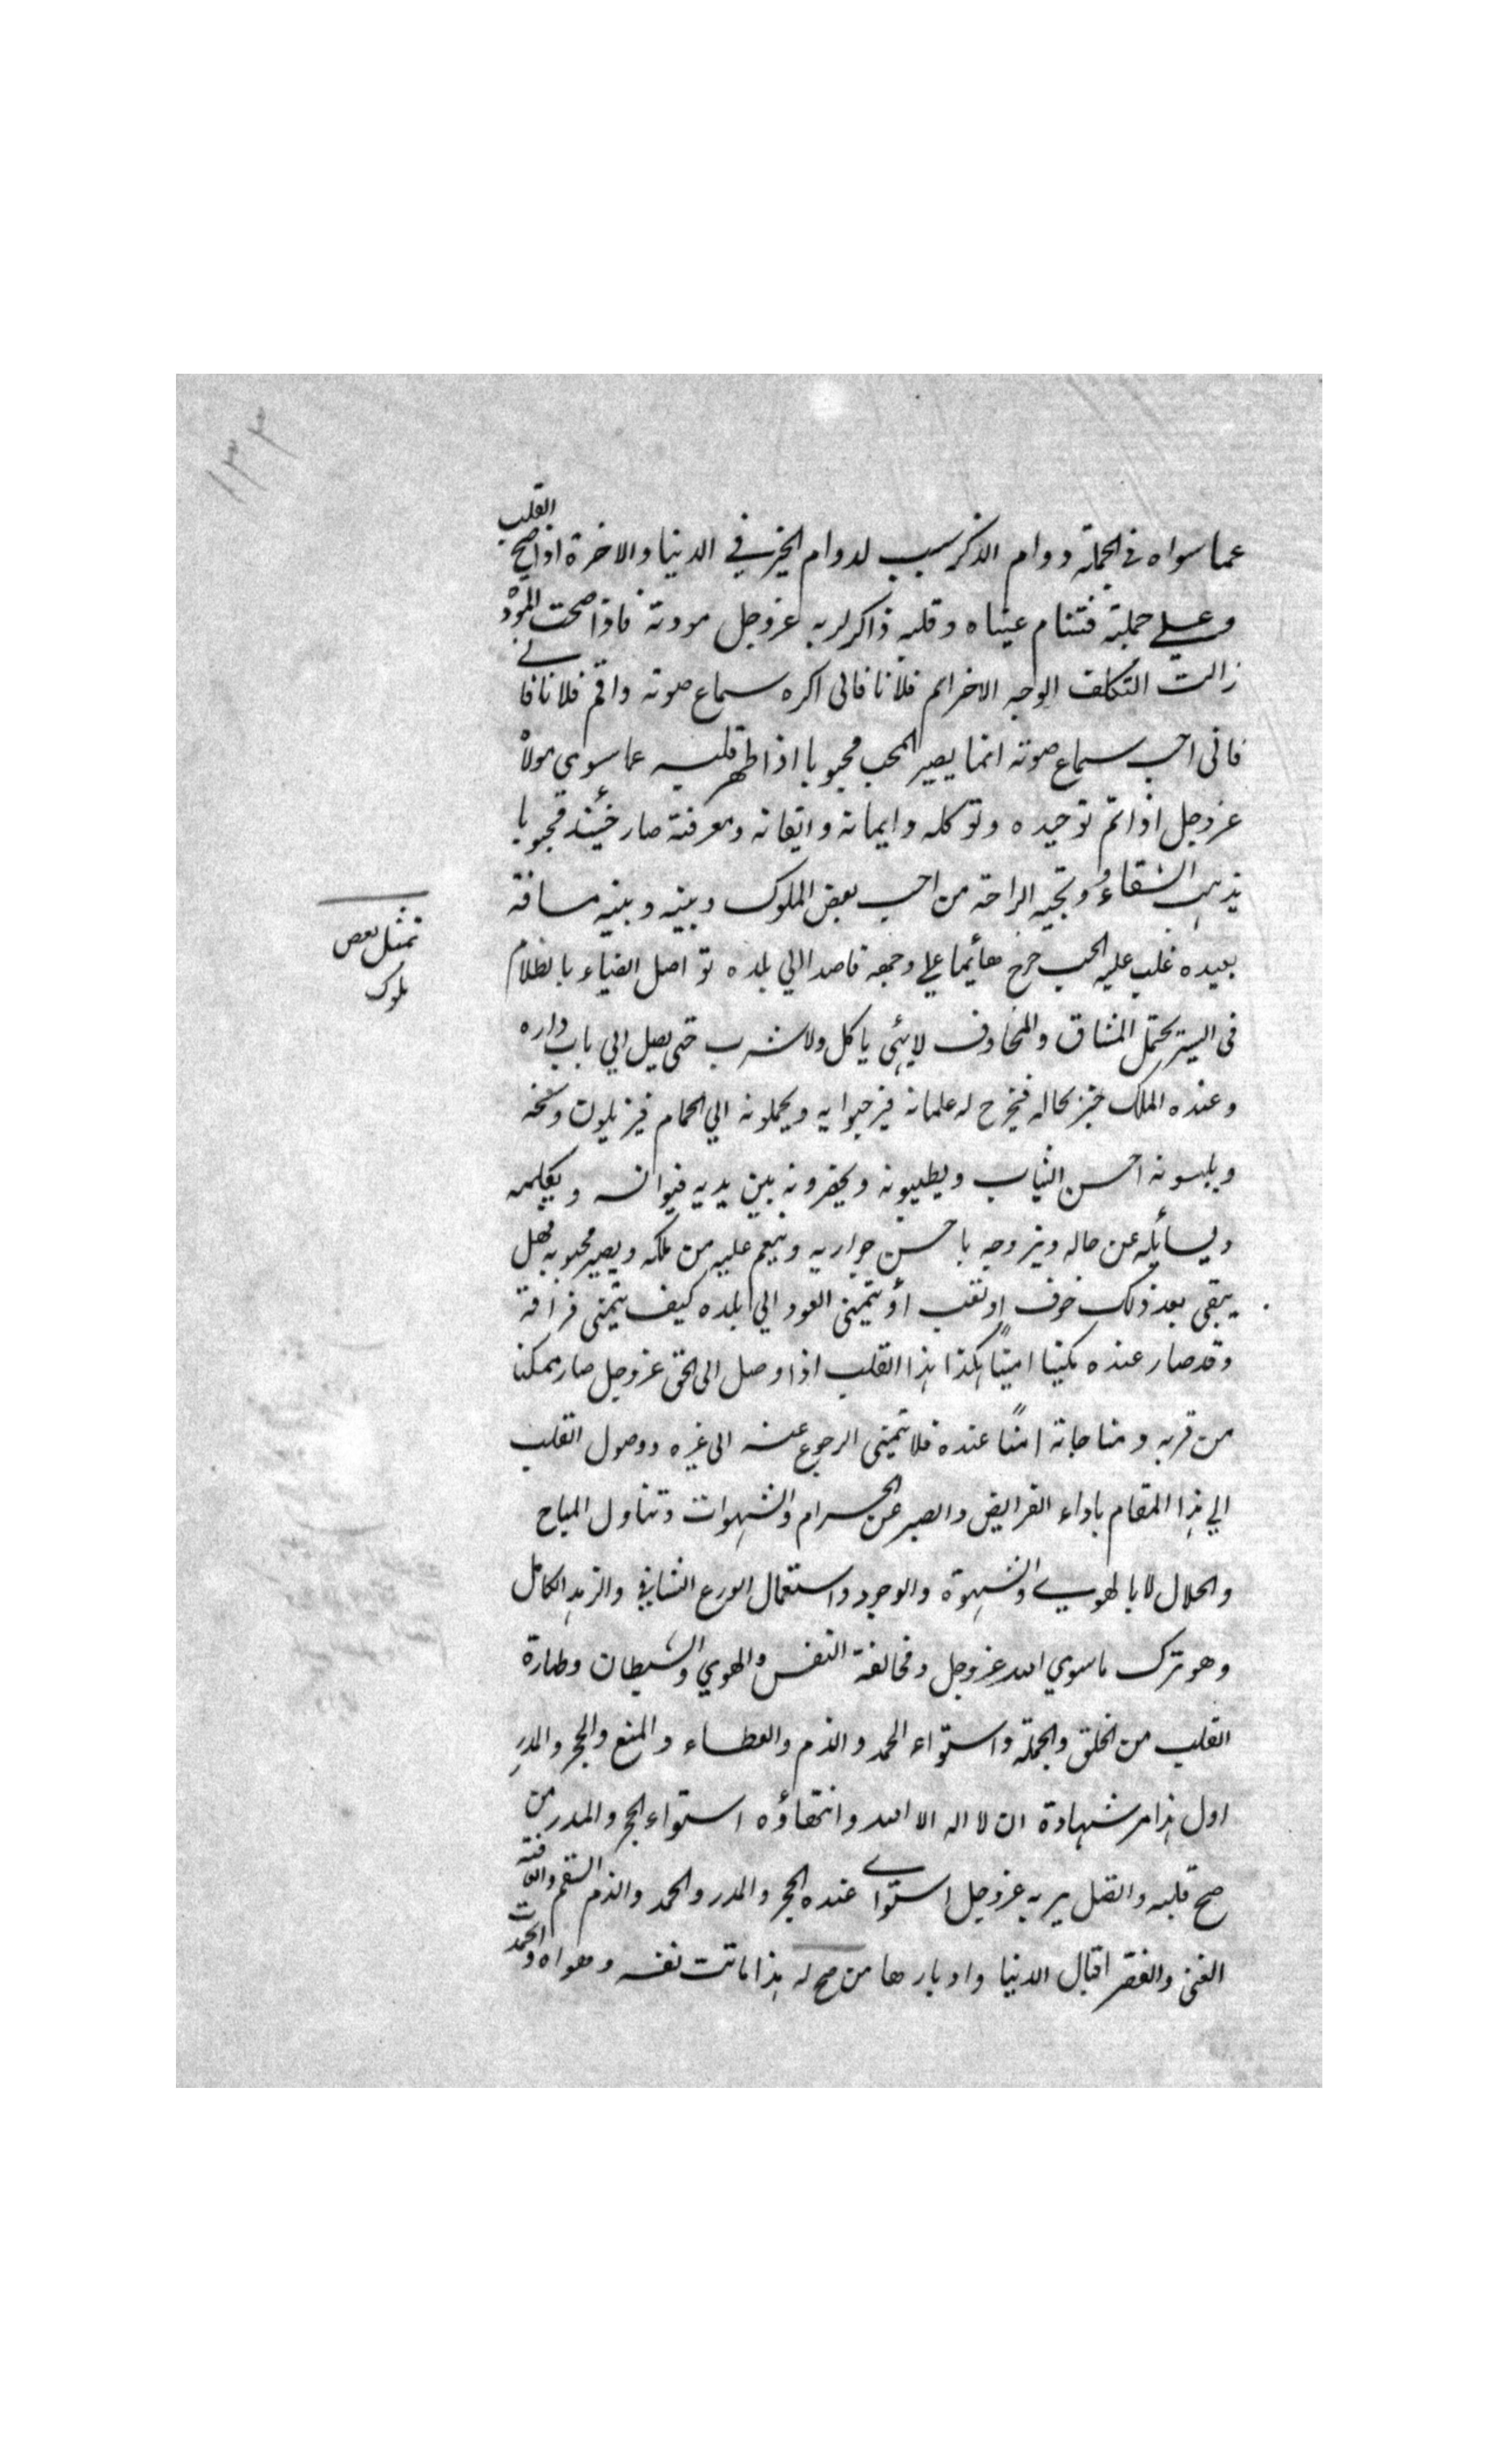 ١٣٣
عما سواه في الجملة دوام الذكر سبب لدوام الخير في الدنيا والاخرة اذا صح القلب
وعلي جملته فتنام عيناه وقلبه ذاكر لربه عزوجل مودته فاذا صحت المودة
زالت التكلف الوجه الاخر انم فلانا فاني اكره سماع صوته واقم فلانا فا
فاني احب سماع صوته انما يصير المحب محبوبا اذا طهر قلبه عما سوي مولاه
عزوجل اذا تم توحيده وتوكله وايمانه وايقانه ومعرفته صار حينئذ محبوبا
يذهب الشقاء وتجيه الراحة من احب بعض الملوك وبينه وبينه مسافة
بعيده غلب عليه الحب خرج هائما علي وجهه قاصدا الي بلده تواصل الضياء بالظلام
في السير يحتمل المشاق والمخاوف لايهنى ياكل ولا شرب حتى يصل الي باب داره
وعنده الملك خبر بحاله فيخرج له غلمانه فيرحبوا به ويحملونه الي الحمام فيزيلون وسخه
ويلبسونه احسن الثياب ويطيبونه ويحضرونه بين يديه فيوانسه ويكلمه
ويسائله عن حاله ويزوجه باحسن جواريه وينعم عليه من ملكه ويصير محبوبه فهل
يبقى بعد ذلك خوف او تعب أو يتمنى العود الي بلده كيف يتمنى فراقه
وقد صار عنده مكينا امينا هكذا هذا القلب اذا وصل الى الحق عزوجل صار ممكنا
من قربه ومناجاته امنًا عنده فلا يتمنى الرجوع عنه الى غيره ووصول القلب
الي هذا المقام باداء الفرايض والصبر عن الحرام والشهوات وتناول المباح
والحلال لا بالهوي والشهوة والوجود واستعمال الورع الشافي والزهد الكامل
وهو ترك ماسوي الله عزوجل ومخالفة النفس والهوي والشيطان وطهارة
القلب من الخلق والجملة واستواء الحمد والذم والعطاء والمنع والحجر والمدر
اول هذا مر شهادة ان لا اله الا الله وانتهاؤه استواء الحجر والمدر من
صح قلبه واتصل بربه عزوجل استوي عنده الحجر والمدر والحمد والذم السقم والعافية
الغنى والفقر اقبال الدنيا وادبارها من صح له هذا ماتت نفسه وهواه و
تمثل بعض
ملوك